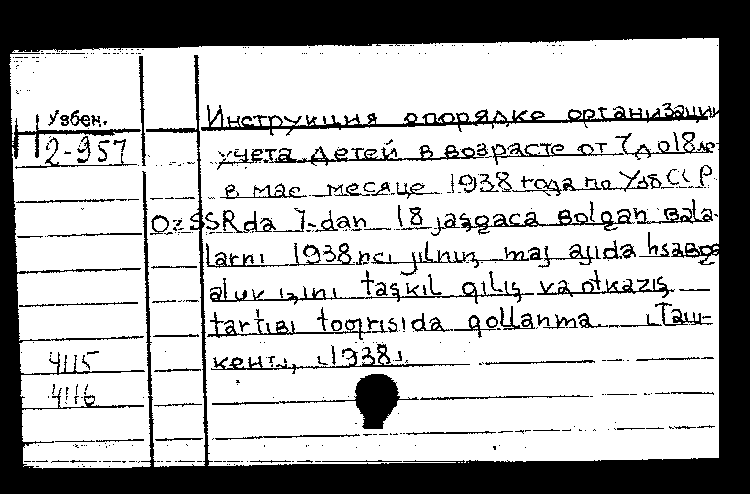 Узбек.
2-957
Инструкция опорядке организации
учета детей в возрасте от 7 до 18 лет
в мае месяце 1938 года по УзбССР
OzSSRda 7-dan 18 jaşgaca Bolgan Bala-
larnı 1938 ncı jılnıŋ maj ajıda hsaBga
aluv işini taşkil qiliş va otkaziş
tartiBi toqrisida qollanma. [Таш-
кент], [1938].
4115
4116